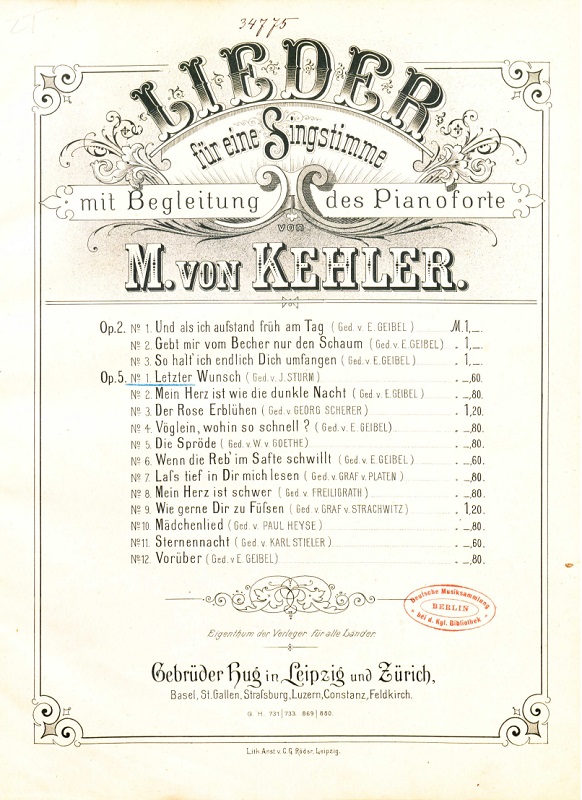 34775
LIEDER
für eine Singstimme
mit Begleitung des Pianoforte
von
M. VON KEHLER.
Op. 2. No 1. Und als ich aufstand früh am Tag (Ged. v. E. GEIBEL) M. 1,—.
No 2. Gebt mir vom Becher nur den Schaum (Ged. v. E. GEIBEL) „ 1,—.
No 3. So halt' ich endlich Dich umfangen (Ged. v. E. GEIBEL) „ 1,—.
Op. 5. No 1. Letzter Wunsch (Ged. v. J. STURM) „ —,60.
No 2. Mein Herz ist wie die dunkle Nacht (Ged. v. E. GEIBEL) „ —,80.
No 3. Der Rose Erblühen (Ged. v. GEORG SCHERER) „ 1,20.
No 4. Vöglein, wohin so schnell? (Ged. v. E. GEIBEL) „ —,80.
No 5. Die Spröde (Ged. v. W. v. GOETHE) „ —,80.
No 6. Wenn die Reb' im Safte schwillt (Ged. v. E. GEIBEL) „ —,60.
No 7. Laſs tief in Dir mich lesen (Ged. v. GRAF v. PLATEN) „ —,80.
No 8. Mein Herz ist schwer (Ged. v. FREILIGRATH) „ —,80.
No 9. Wie gerne Dir zu Füſsen (Ged. v. GRAF v. STRACHWITZ) „ 1,20.
No 10. Mädchenlied (Ged. v. PAUL HEYSE) „ —,80.
No 11. Sternennacht (Ged. v. KARL STIELER) „ —,60.
No 12. Vorüber (Ged. v. E. GEIBEL) „ —,80.
Deutsche Musiksammlung
BERLIN
bei d. Kgl. Bibliothek
Eigenthum der Verleger für alle Länder.
Gebrüder Hug in Leipzig und Zürich,
Basel, St. Gallen, Straſsburg, Luzern, Constanz, Feldkirch.
G. H. 731|733. 869|880.
Lith. Anst. v. C. G. Röder, Leipzig.